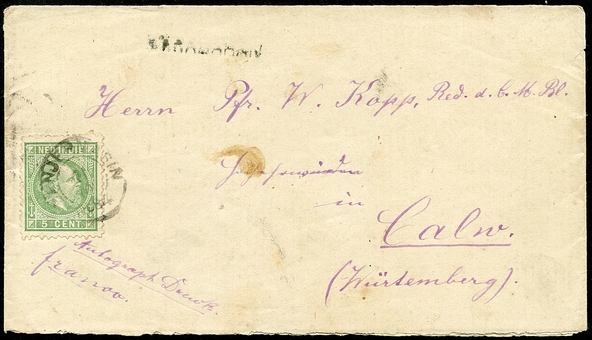 Herrn Pfr. W. Kopp, Red. d. C. M. Bl.
in
Calw.
(Württemberg).
NED. INDIE
5 CENT.
Autograph Druck
franco.